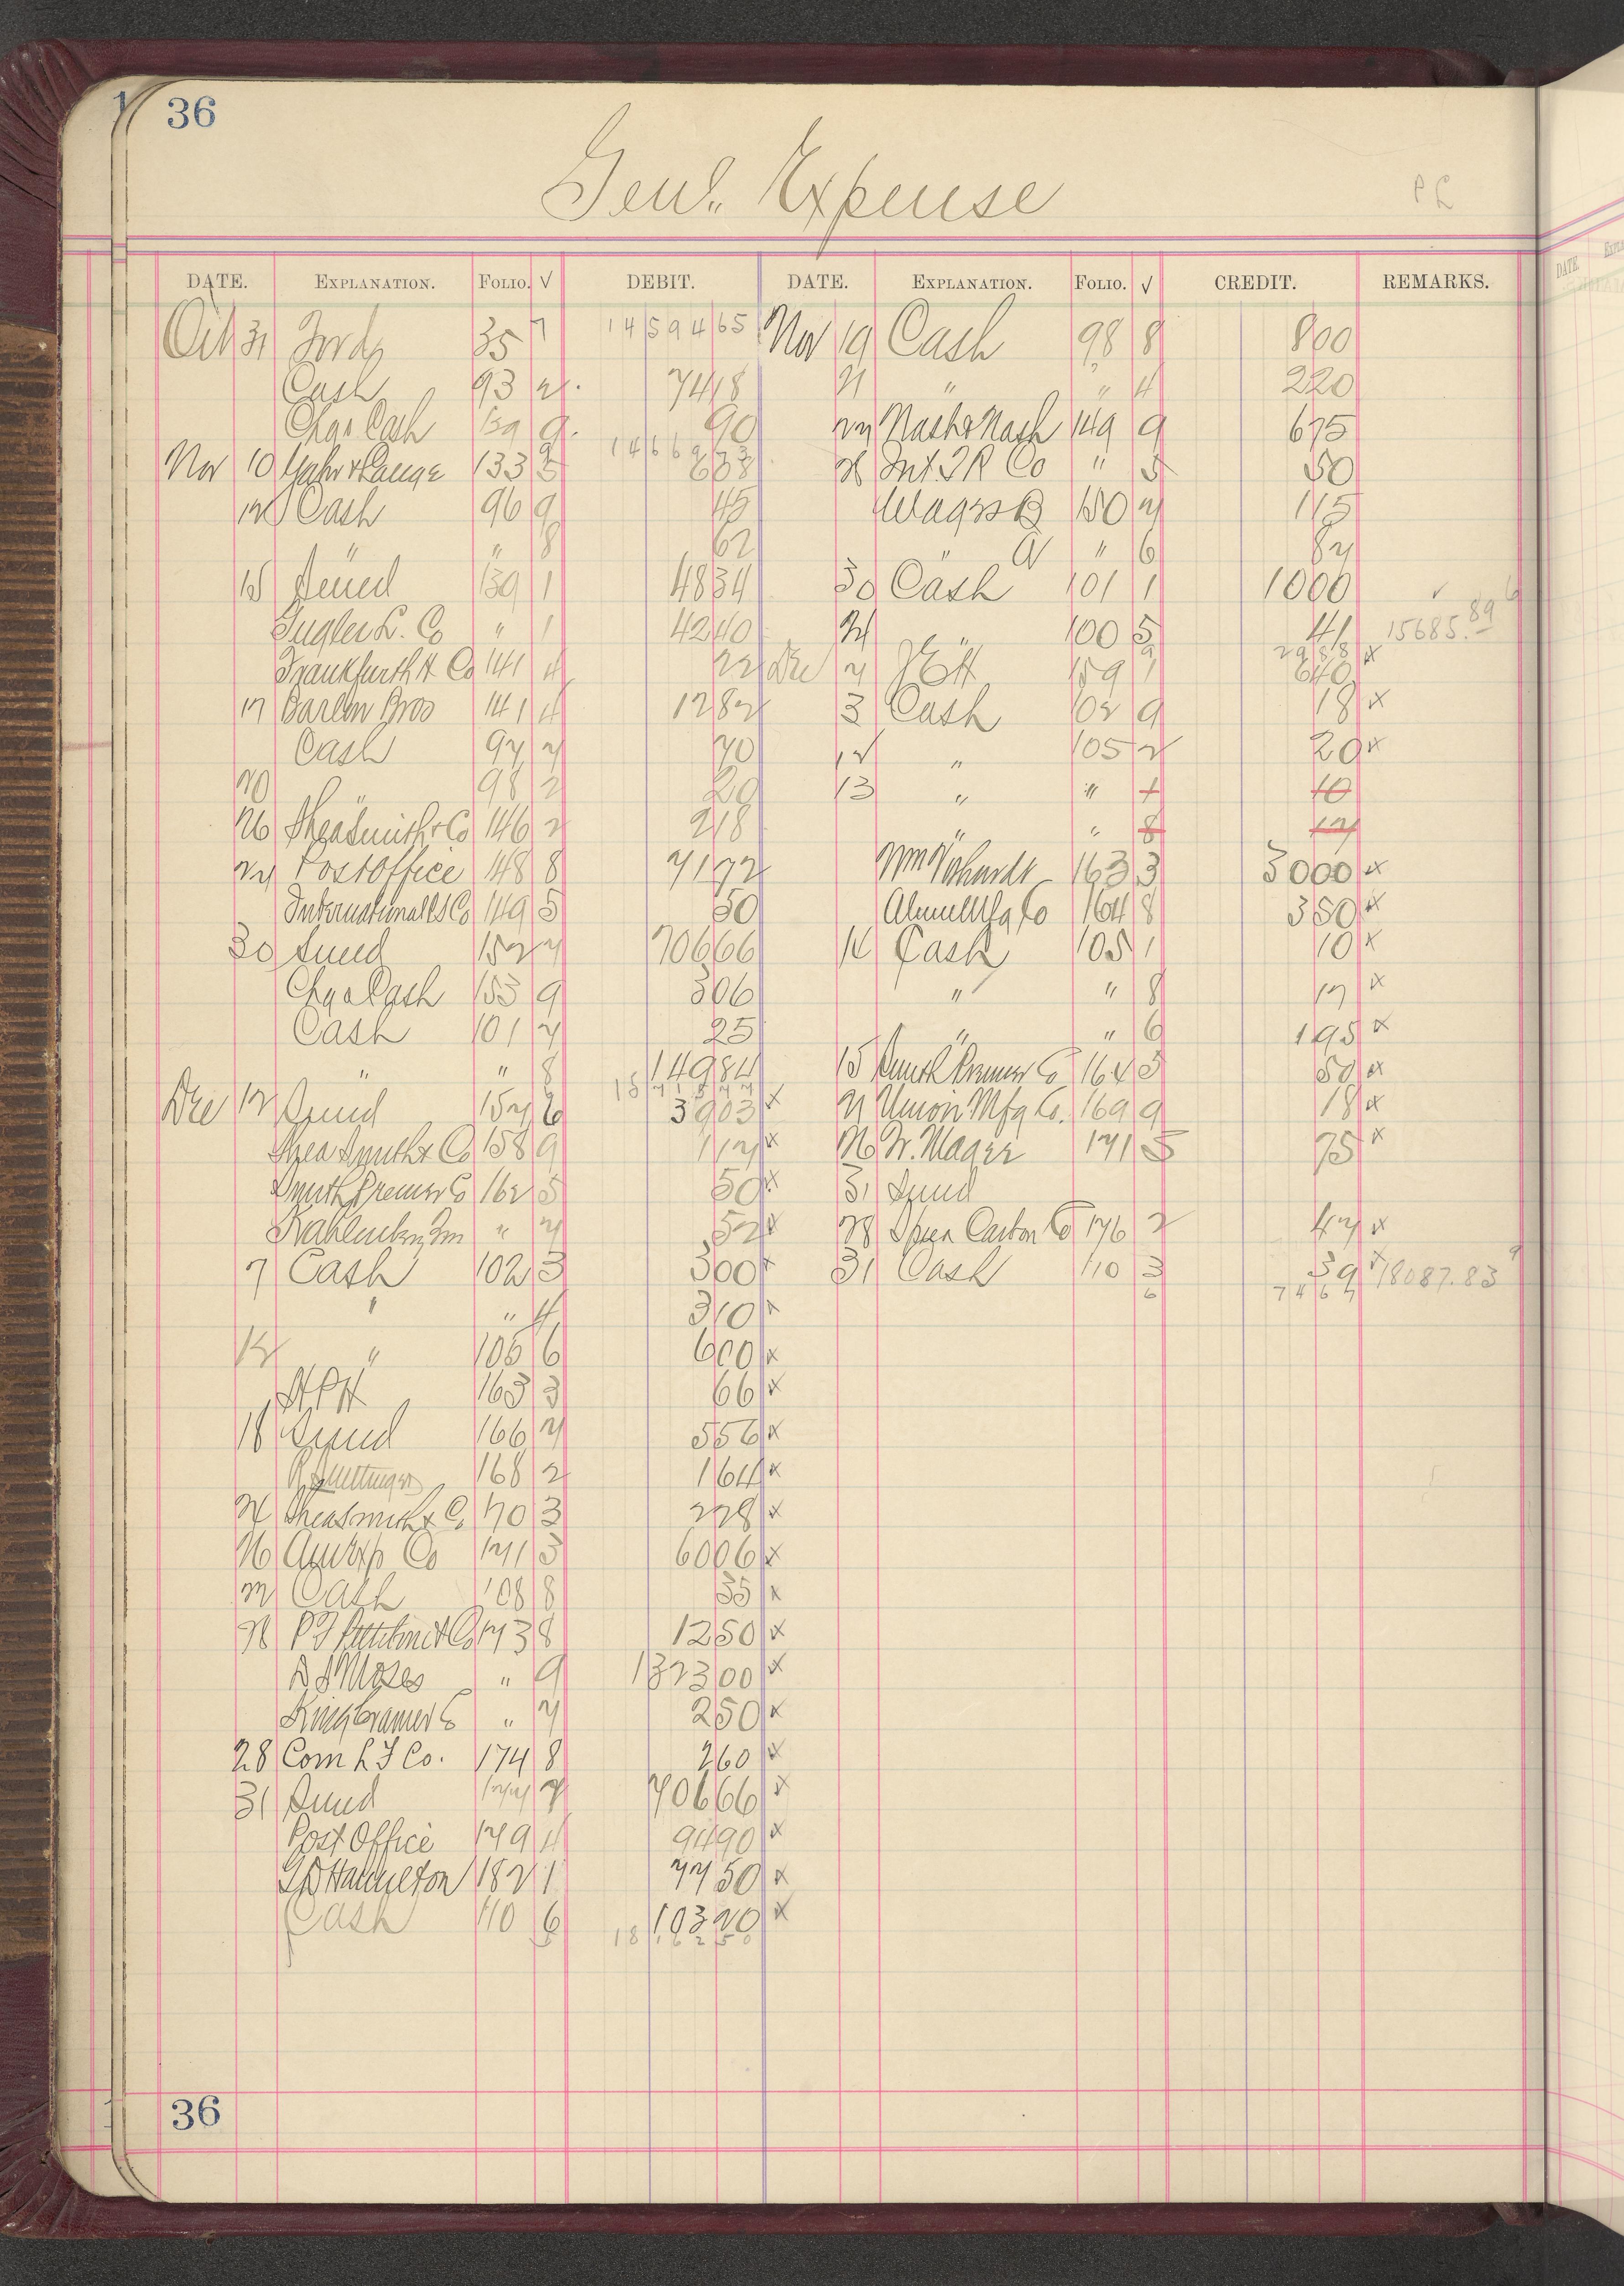 36
Genl. Expense
P L
DATE. EXPLANATION. FOLIO. √ DEBIT. DATE. EXPLANATION. FOLIO. √ CREDIT. REMARKS.
Oct 31 Forwd 35 7 14594 65 Nov 19 Cash 98 8 8 00
Cash 93 2 74 18 21 " " 4 2 20
Chgo Cash 139 9 90 27 Nash & Nash 149 9 6 75
Nov 10 Yahr & Lange 133 5 6 38 28 Int. T R Co " 5 50
12 Cash 96 9 45 Wages B 150 7 1 15
" " 8 62 " A " 6 87
15 Sund 139 1 48 34 30 Cash 101 1 10 00
Gugler L. Co " 1 42 40 24 " 100 5 41 15685.89
Frankfurth H Co 141 4 22 Dec 7 159 1 6 40 x
17 Barlow Bros 141 4 12 82 3 Cash 102 9 18 x
Cash 97 7 70 12 " 105 2 20 x
20 " 98 2 20 13 " " 1 10
26 Shea Smith & Co 146 2 2 18 " " 8 17
27 Post Office 148 8 71 72 163 3 30 00 x
International S Co 149 5 50 Mfg Co 164 8 3 50 x
30 Sund 152 7 706 66 14 Cash 105 1 10 x
Chgo Cash 153 9 3 06 " " 8 17 x
Cash 101 7 25 " " 6 1 95 x
" " 8 149 84 15 Smith Premier Co 164 5 50 x
Dec 12 Sund 157 6 39 03 x 21 Union Mfg Co. 169 9 18 x
Shea Smith & Co 158 9 1 17 x 26 W. Mager 171 5 75 x
Smith Premier Co 162 5 50 x 31 Sund
" 7 52 x 28 Speer Carbon Co 176 2 47 x
7 Cash 102 3 3 00 x 31 Cash 110 3 39 x 18087.83
" " 4 3 10 x 74 67
12 " 105 6 6 00 x
H P H 163 3 66 x
18 Sund 166 7 5 56 x
168 2 1 64 x
24 Shea Smith & Co 170 3 2 28 x
26 Am Exp Co 171 3 60 06 x
27 Cash 108 8 35 x
28 P F Pettibone & Co 173 8 12 50 x
D S Moses " 9 1323 00 x
King Cramer Co " 7 2 50 x
28 Com L I Co. 174 8 2 60 x
31 Sund 177 7 706 66 x
Post Office 179 4 94 90 x
182 1 77 50 x
Cash 110 6 103 20 x
36